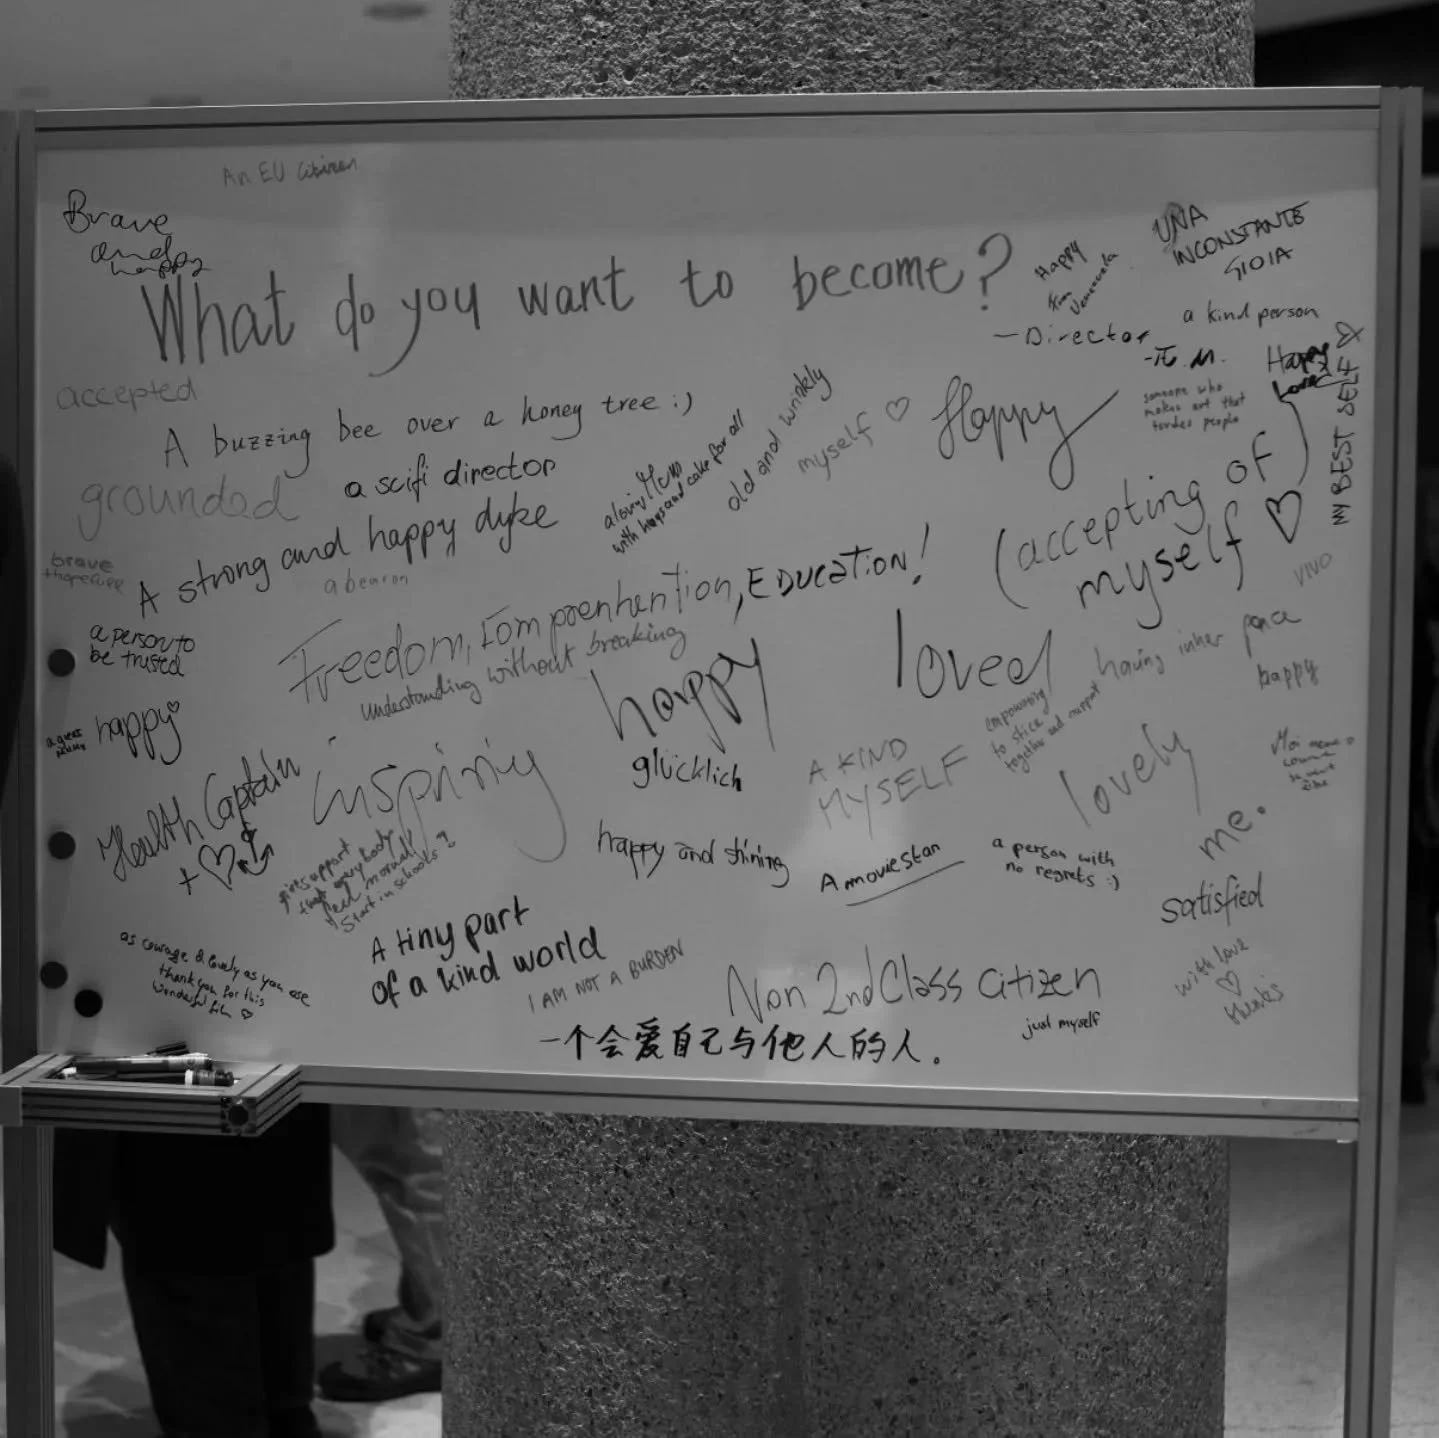 An EU Citizen
Brave
and
happy
What do you want to become?
Happy
Venezuela
UNA
INCONSTANTE
GIOIA
a kind person
- Director
Happy
Loved
MY BEST SELF
accepted
A buzzing bee over a honey tree :)
grounded
a scifi director
A strong and happy dyke
with hugs and cake for all
old and wrinkly
myself ♡
Happy
someone who
makes art that
people
(accepting of
myself ♡
brave
a beacon
Freedom, Comprenhention, EDUCATION!
understanding without breaking
a person to
be trusted
happy
loved
having inner peace
VIVO
happy
empowering
to stick
together and support
happy
glücklich
a great
Health Captain
+ ♡
inspiring
A KIND
MYSELF
lovely
me.
happy and shining
A moviestar
a person with
no regrets :)
satisfied
girls support
that everybody
feel normal!
Start in schools?
A tiny part
of a kind world
I AM NOT A BURDEN
Non 2nd Class citizen
just myself
with love
♡
thanks
as courage & lovely as you are
thank you for this
wonderful film ♡
一个会爱自己与他人的人.